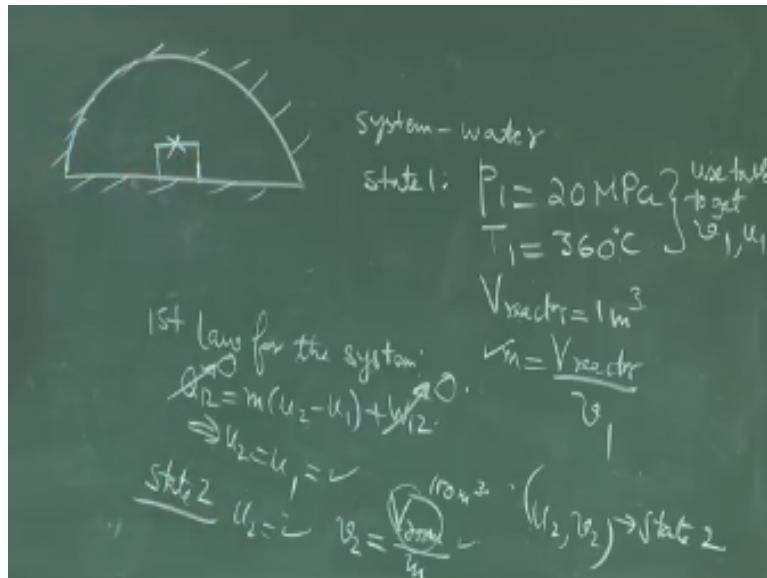 system - water
state 1: P₁ = 20 MPa } use
T₁ = 360°C } to get v₁, u₁
V reactor = 1 m³
✓m = V reactor / v₁
1st Law for the system:
Q₁₂ → 0 = m(u₂ - u₁) + W₁₂ → 0.
⇒ u₂ = u₁ = ✓
State 2 u₂ = ✓ v₂ = V room / m ✓ (u₂, v₂) → State 2